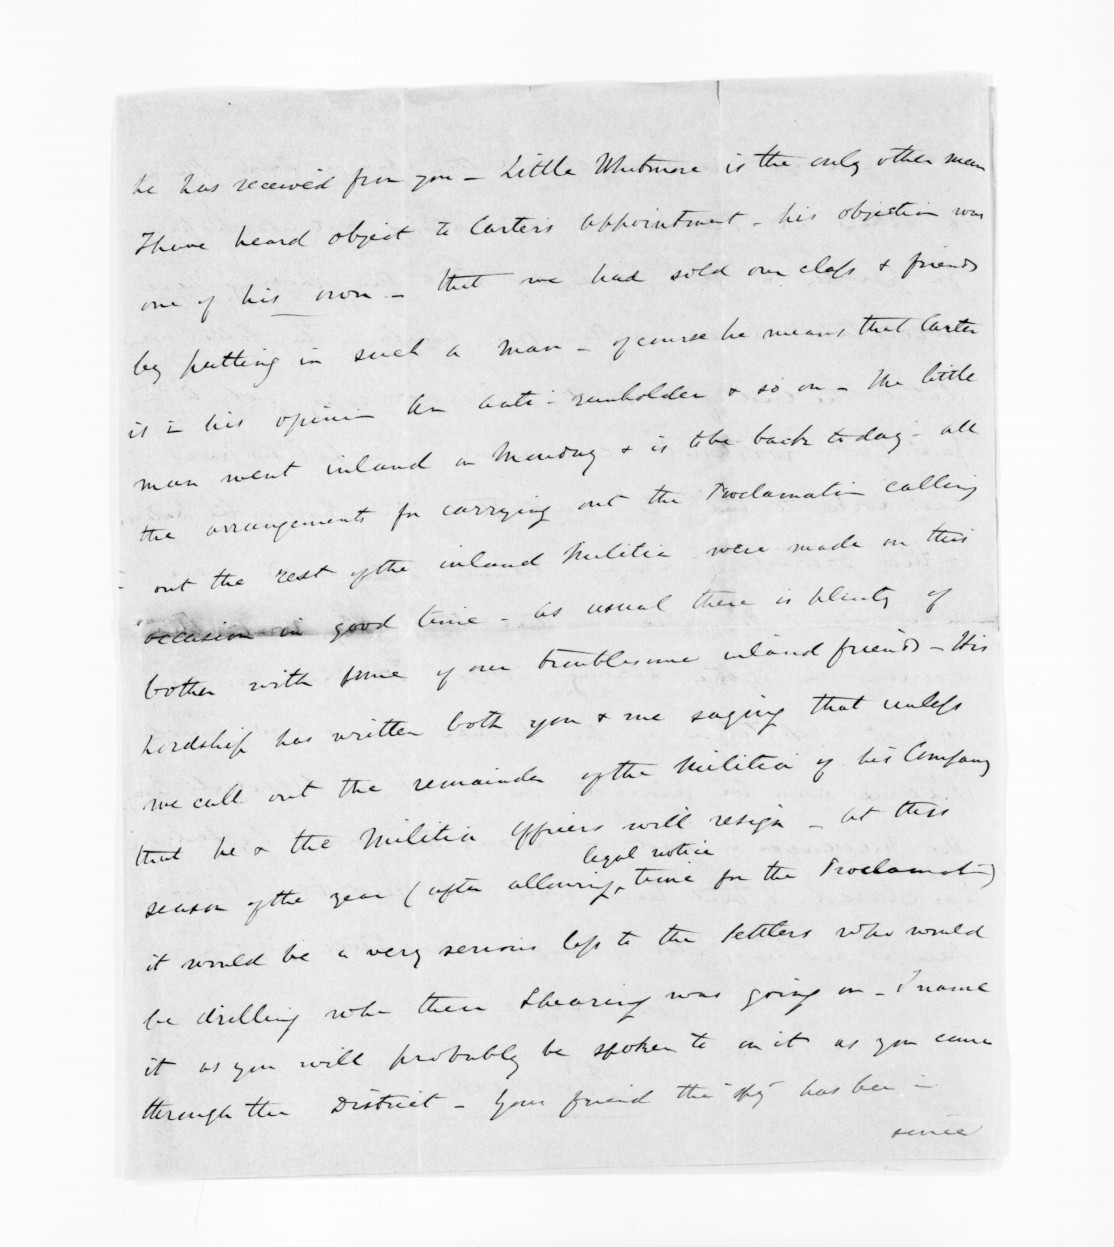 he has received from you - Little Whitmore is the only other man
I have heard object to Carter's appointment - his objection was
one of his own - that we had sold our class & friends
by putting in such a man - of course he means that Carter
is in his opinion an anti-runholder & so on - The little
man went inland on Monday & is to be back today - all
the arrangements for carrying out the Proclamation calling
out the rest of the inland Militia were made on this
occasion in good time - as usual there is plenty of
bother with some of our troublesome inland friends - His
Lordship has written both you & me saying that unless
we call out the remainder of the Militia of his Company
that he & the Militia Officers will resign - at this
legal notice
season of the year (after allowing time for the Proclamation)
it would be a very serious loss to the Settlers who would
be drilling when their Shearing was going on - I name
it as you will probably be spoken to on it as you come
through the District - Your friend the has been in
since